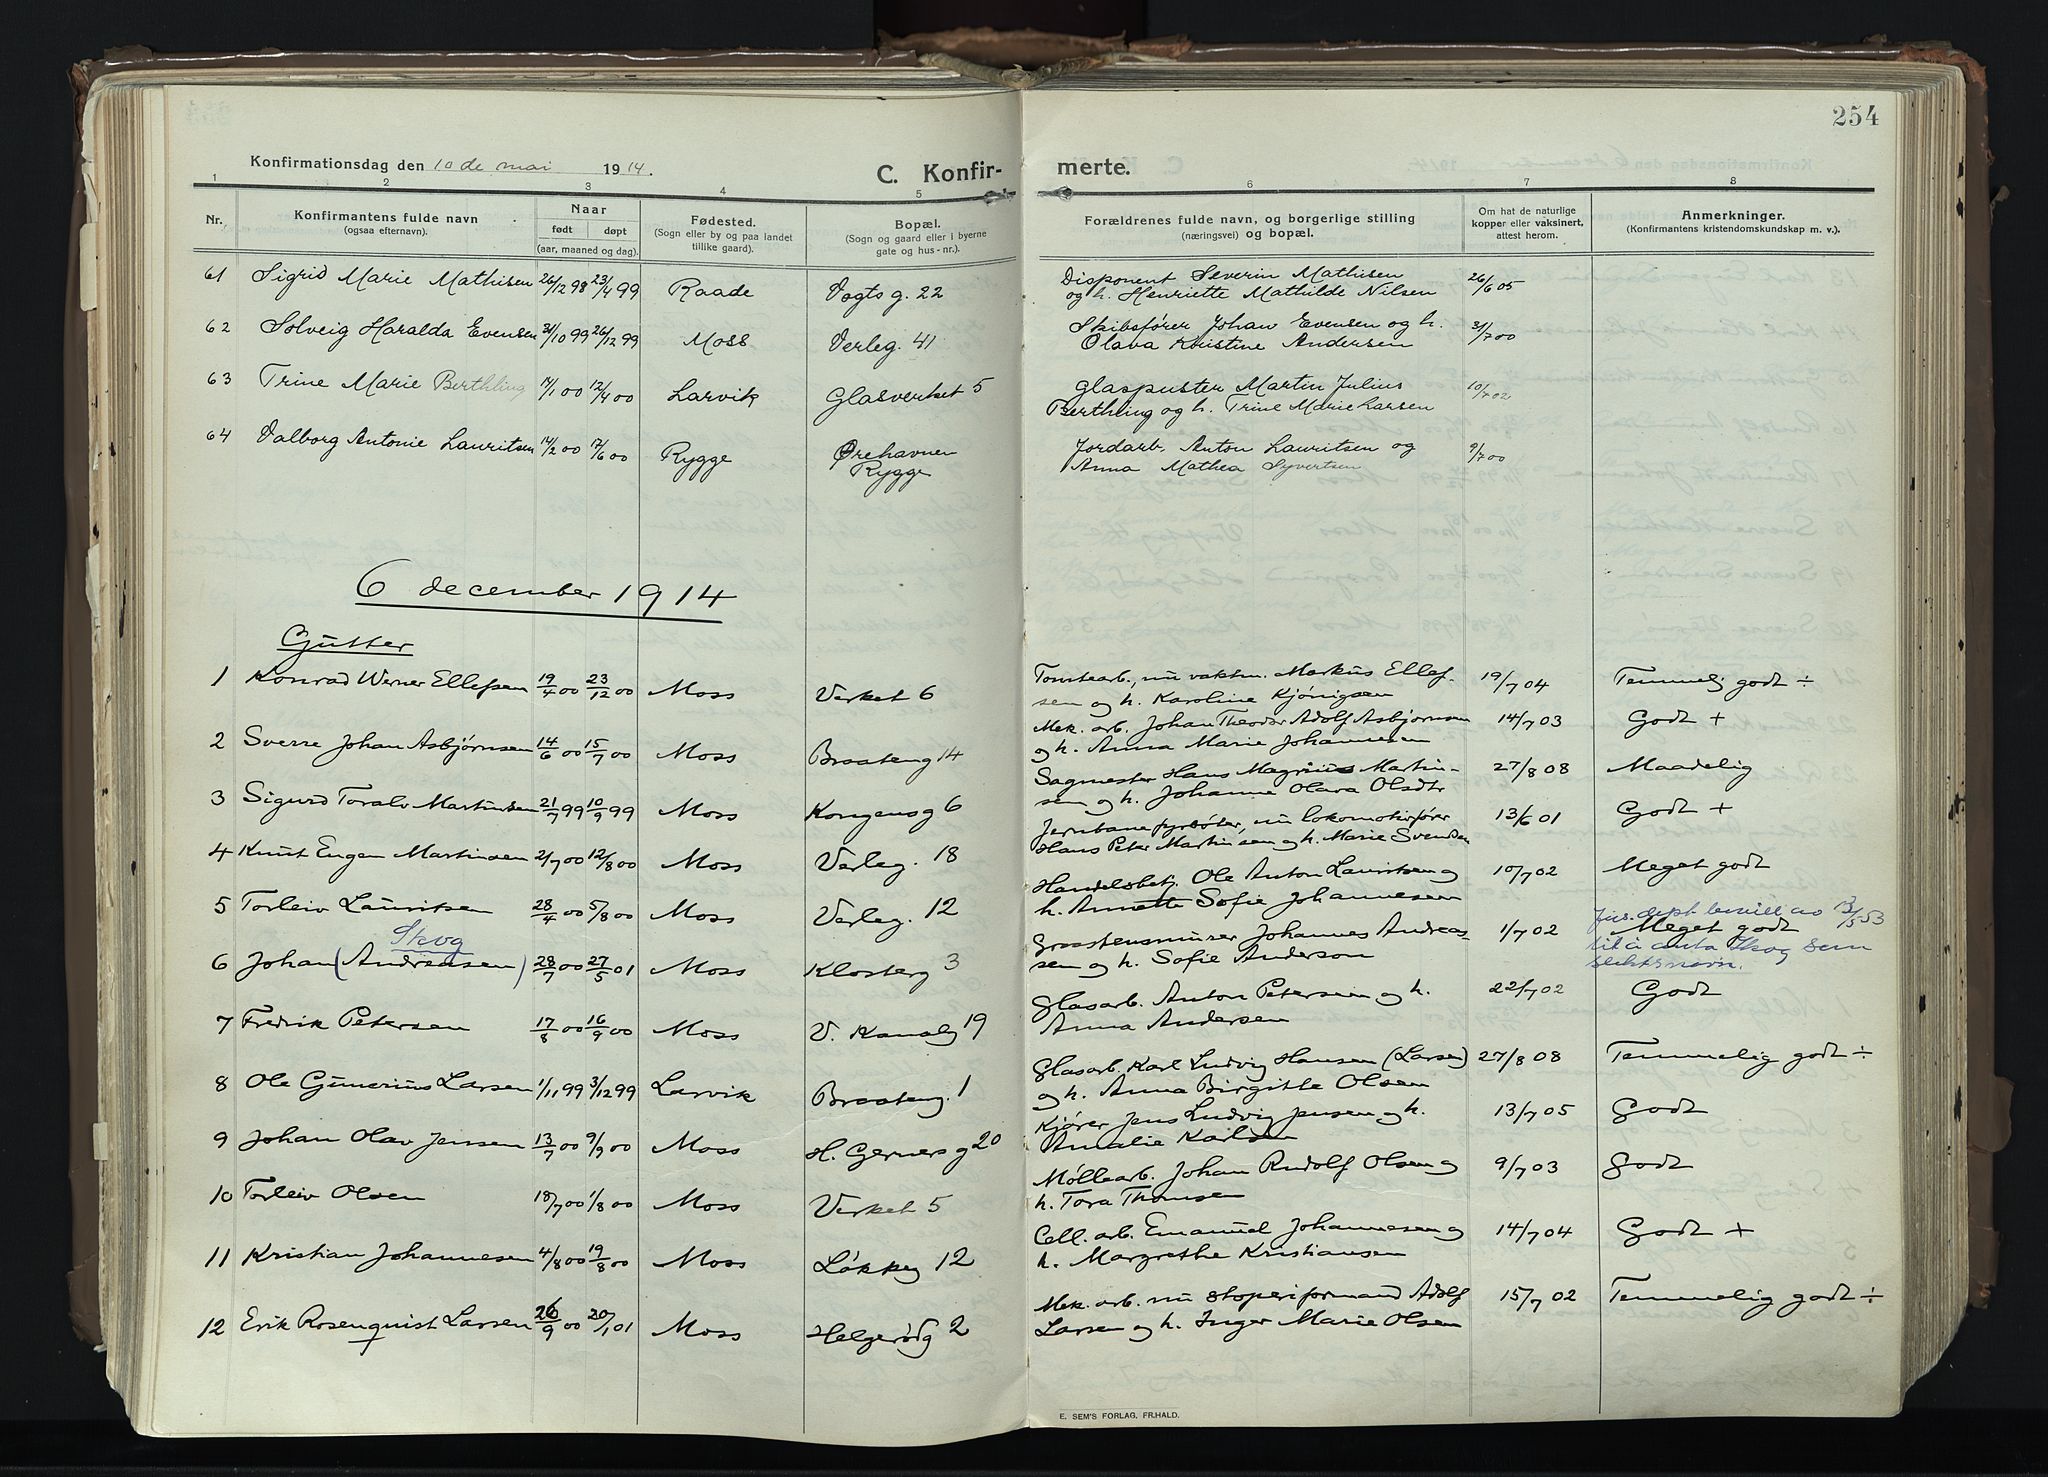 254
Konfirmationsdag den 10 de mai 1914.
C. Konfir-
merte.
1 2 3 4 5 6 7 8
Nr.
Konfirmantens fulde navn
(ogsaa efternavn).
Naar
født døpt
(aar, maaned og dag).
Fødested.
(Sogn eller by og paa landet
tillike gaard).
Bopæl.
(Sogn og gaard eller i byerne
gate og hus-nr.).
Forældrenes fulde navn, og borgerlige stilling
(næringsvei) og bopæl.
Om hat de naturlige
kopper eller vaksinert,
attest herom.
Anmerkninger.
(Konfirmantens kristendomskundskap m. v.).
61 Sigrid Marie Mathisen 26/12 98 23/4 99 Raade Vogts g. 22 Disponent Severin Mathisen 26/6 05
og h. Henriette Mathilde Nilsen
62 Solveig Haralda Evensen 31/10 99 26/12 99 Moss Verleg. 41 Skibsfører Johan Evensen og h. 31/7 00
Olava Kristine Andersen
63 Trine Marie Berthling 14/1 00 12/4 00 Larvik Glasverket 5 Glaspuster Martin Julius 10/7 02
Berthling og h. Trine Marie Larsen
64 Valborg Antonie Lauritsen 14/2 00 17/6 00 Rygge Ørehavnen Jordarb. Anton Lauritsen og 9/7 00
Rygge Anna Mathea Syvertsen
6 december 1914
Gutter
1 Konrad Werner Ellefsen 19/4 00 23/12 00 Moss Verket 6 Tomtearb., nu vaktm. Markus Ellef- 19/7 04 Temmelig godt ÷
sen og h. Karoline Kjønigsen
2 Sverre Johan Asbjørnsen 14/6 00 15/7 00 Moss Braateng 14 Mek. arb. Johan Theodor Adolf Asbjørnsen 14/7 03 Godt +
og h. Anna Marie Johannesen
3 Sigurd Toralv Martinsen 21/7 99 10/9 99 Moss Kongensg 6 Sagmester Hans Magnus Martin- 27/8 08 Maadelig
sen og h. Johanne Olava Olsdtr
4 Knut Eugen Martinsen 2/7 00 12/8 00 Moss Verleg. 18 Jernbanefyrbøter, nu lokomotivfører 13/6 01 Godt +
Hans Peter Martinsen og h. Marie Svendsen
5 Torleiv Lauritsen 28/4 00 5/8 00 Moss Verleg. 12 Handelsbetj. Ole Anton Lauritsen og 10/7 02 Meget godt
h. Annette Sofie Johannesen
Skog
6 Johan (Andreasen) 28/7 00 27/5 01 Moss Klosterg 3 Graastensmurer Johannes Andreas- 1/7 02 Meget godt
sen og h. Sofie Anderson
Jus. dept. bevill. av 13/5 53
til å anta Skog som
slektsnavn.
7 Fredrik Petersen 17/8 00 16/9 00 Moss V. Kanalg 19 Glasarb. Anton Petersen og h. 22/7 02 Godt
Anna Andersen
8 Ole Gunerius Larsen 1/11 99 3/12 99 Larvik Braateng. 1 Glasarb. Karl Ludvig Hansen (Larsen) 27/8 08 Temmelig godt ÷
og h. Anna Birgitte Olsen
9 Johan Olav Jensen 13/7 00 9/9 00 Moss H. Gerners g 20 Kjører Jens Ludvig Jensen og h. 13/7 05 Godt
Amalie Karlsen
10 Torleiv Olsen 18/7 00 1/8 00 Moss Verket 5 Møllearb. Johan Rudolf Olsen og 9/7 03 Godt
h. Tora Thomsen
11 Kristian Johannesen 4/8 00 19/8 00 Moss Løkkeg 12 Cell. arb. Emanuel Johannesen og 14/7 04 Godt +
h. Margrethe Kristiansen
12 Erik Rosenquist Larsen 26/9 00 20/1 01 Moss Helgerødg 2 Mek. arb. nu støperiformand Adolf 15/7 02 Temmelig godt ÷
Larsen og h. Inger Marie Olsen
E. SEM'S FORLAG, FR.HALD.